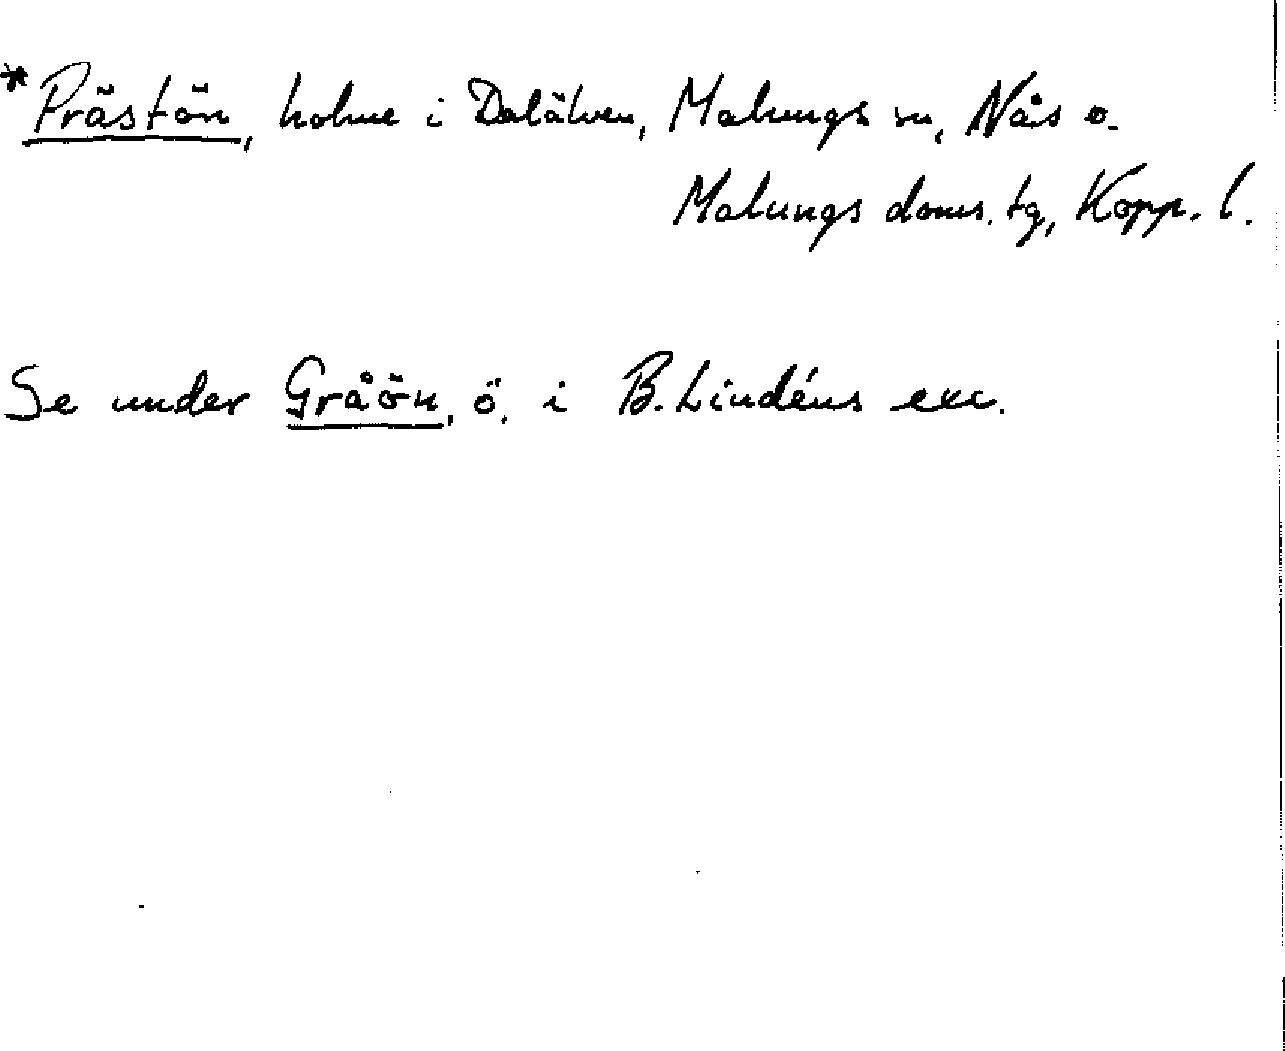 *Prästön, holme i Dalälven, Malungs sn, Nås o.
Malungs doms. tg, Kopp. l.
Se under Gråön, ö, i B. Lindéns exc.